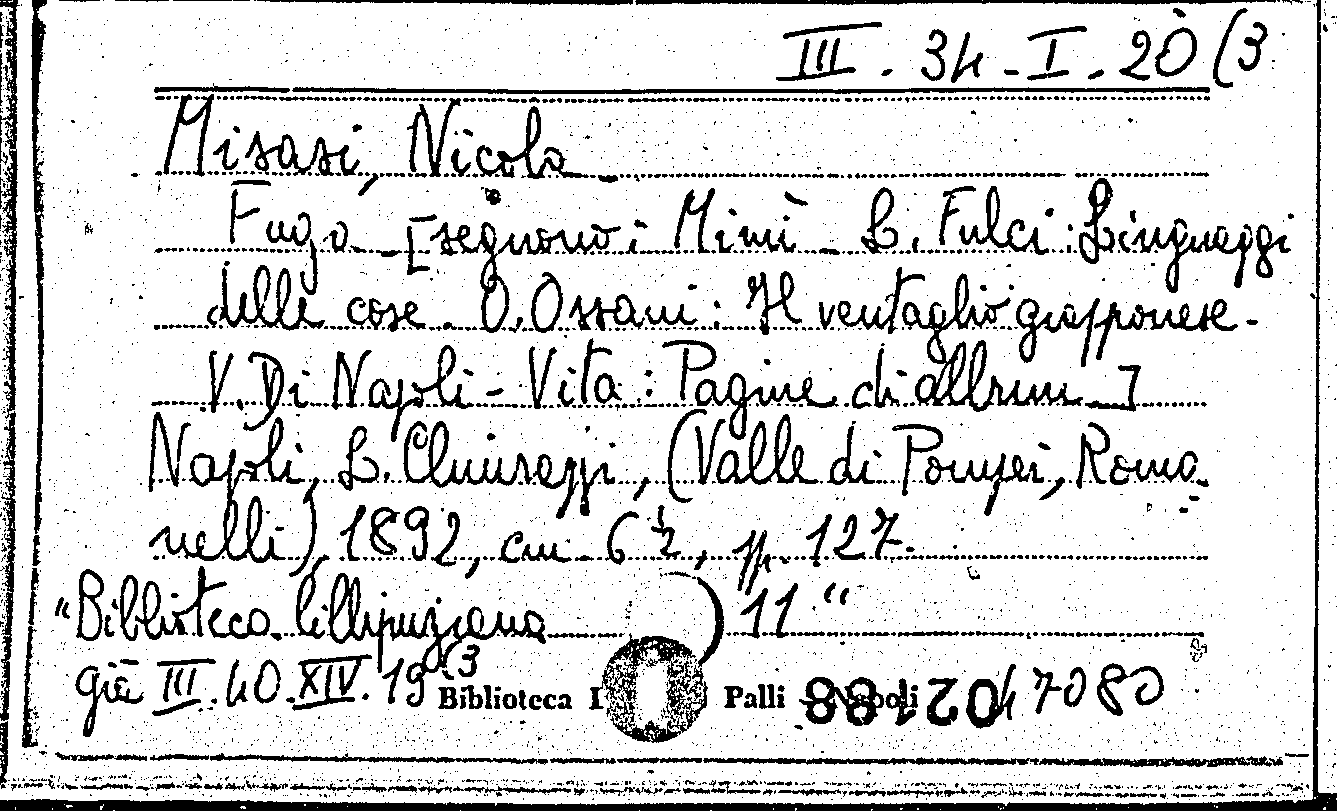 III. 34. I. 20 (3
Misasi, Nicola
Fuga. [seguono: Mimì. L. Fulci: Linguaggi
delle cose. O. Ossani: Il ventaglio giapponese.
V. Di Napoli-Vita: Pagine di album.]
Napoli, L. Chiurazzi, (Valle di Pompei, Roma
nelli), 1892, cm. 6 ½, pp. 127.
"Biblioteca lillipuziana 11"
già III. 40. XIV. 19 (3
Biblioteca Palli - Napoli 47080
021188